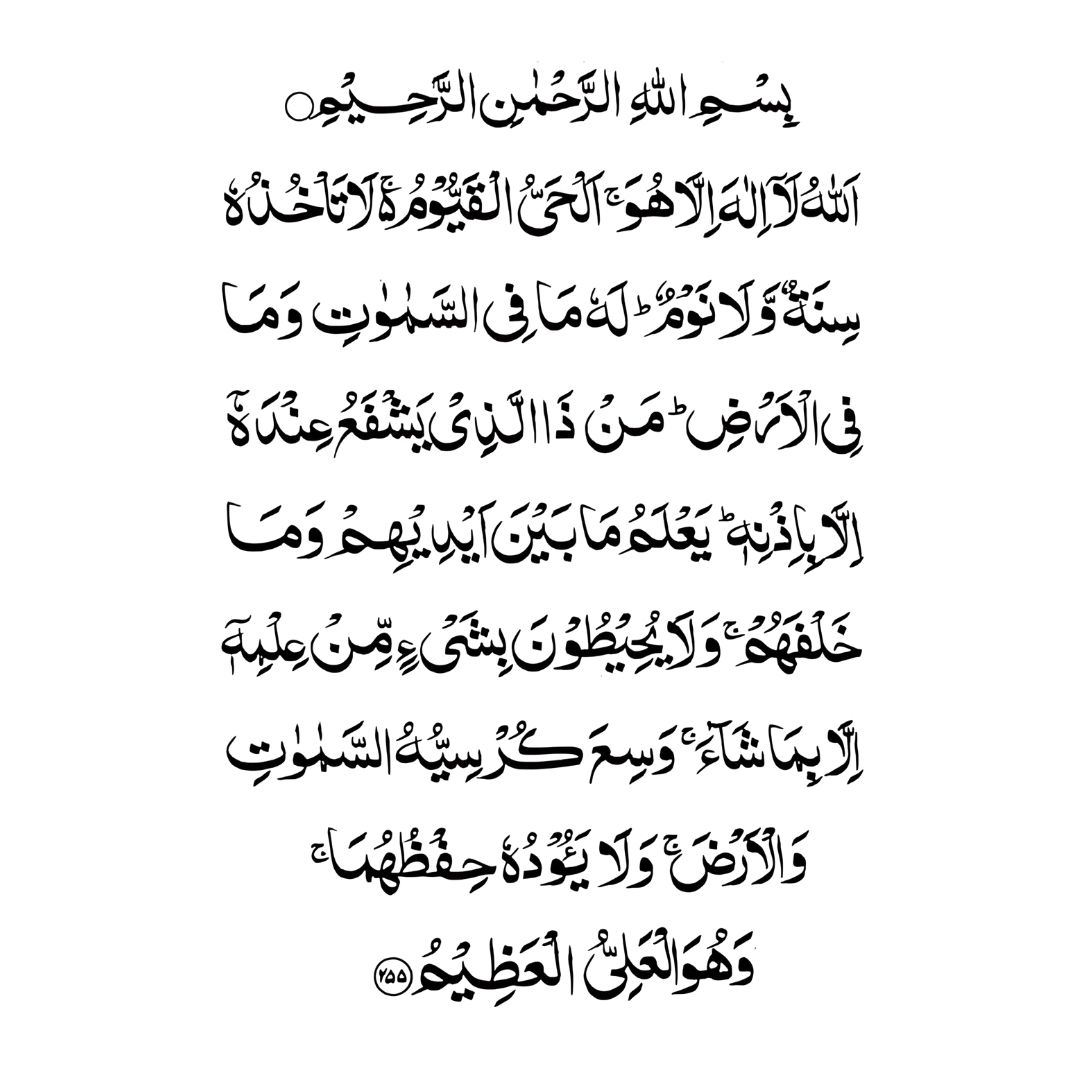 بِسْمِ اللّٰهِ الرَّحْمٰنِ الرَّحِيْمِ○
اَللّٰهُ لَآ اِلٰهَ اِلَّا هُوَۚ اَلْحَیُّ الْقَيُّوْمُ ە ۚ لَا تَاْخُذُهٗ
سِنَةٌ وَّلَا نَوْمٌؕ لَهٗ مَا فِی السَّمٰوٰتِ وَمَا
فِی الْاَرْضِؕ مَنْ ذَا الَّذِیْ يَشْفَعُ عِنْدَهٗۤ
اِلَّا بِاِذْنِهٖؕ يَعْلَمُ مَا بَيْنَ اَيْدِيْهِمْ وَمَا
خَلْفَهُمْۚ وَلَا يُحِيْطُوْنَ بِشَیْءٍ مِّنْ عِلْمِهٖۤ
اِلَّا بِمَا شَآءَۚ وَسِعَ كُرْسِيُّهُ السَّمٰوٰتِ
وَالْاَرْضَۚ وَلَا يَـُٔوْدُهٗ حِفْظُهُمَاۚ
وَهُوَ الْعَلِیُّ الْعَظِيْمُ ۲۵۵